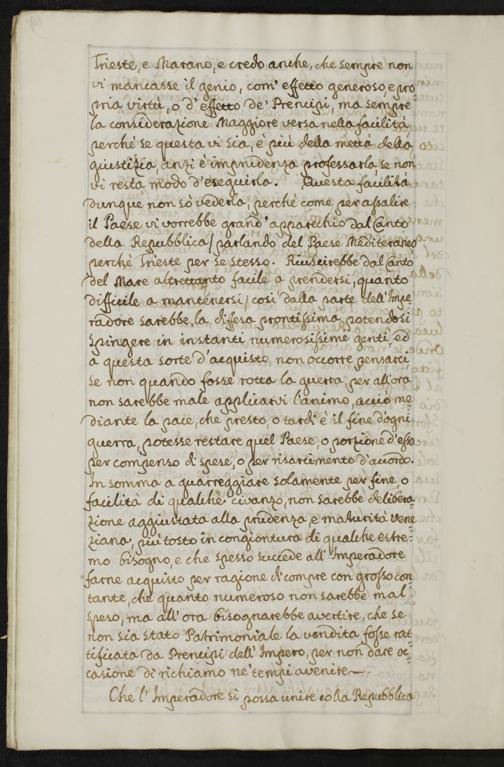 Trieste, e Marano, e credo anche, che sempre non
vi mancasse il genio, com' effetto generoso e pro
pria virtù, o d'effetto de' Prencipi, ma sempre
la considerazione Maggiore versa nella facilità,
perche se questa vi sia, è più della metta della
giustizia, anzi è imprudenza professarla, se non
vi resta modo d'eseguirla. Questa facilità
dunque non sò vederla, perche come per assalire
il Paese vi vorrebbe grand' apparechio dal Canto
della Republica / parlando del Paese Mediteraneo
perche Trieste per se stesso. Riuscirebbe dal Canto
del Mare altrettanto facile a prendersi, quanto
difficile a mantenersi / così dalla parte dell' Impe
radore sarebbe la diffesa prontissima potendosi
spingere in instanti numerosissime genti, ed
a questa sorte d'acquisto non occorre pensarci
se non quando fosse rotta la guerra, per all'ora
non sarebbe male applicarvi l'animo, acciò me
diante la pace, che presto, o tardi è il fine d'ogni
guerra, potesse restare quel Paese, o porzione d'esso
per compenso di spese, o per risarcimento d'accordo.
In somma a guarreggiare solamente per fine, o
facilità di qualche civanzo, non sarebbe delibera
zione aggiustata alla prudenza, e maturità vene
ziana, più tosto in congiontura di qualche estre-
mo bisogno, e che spesso succede all' Imperadore
farne acquisto per ragione di compre con grosso con
tante, che quanto numeroso non sarebbe mal
speso, ma all' ora bisognarebbe avertire, che se
non sia stato Patrimoniale la vendita fosse rat
tificata da Prencipi dell' Impero, per non dare oc-
casione di richiamo ne' tempi avenire
Che l' Imperadore si possa unire colla Republica